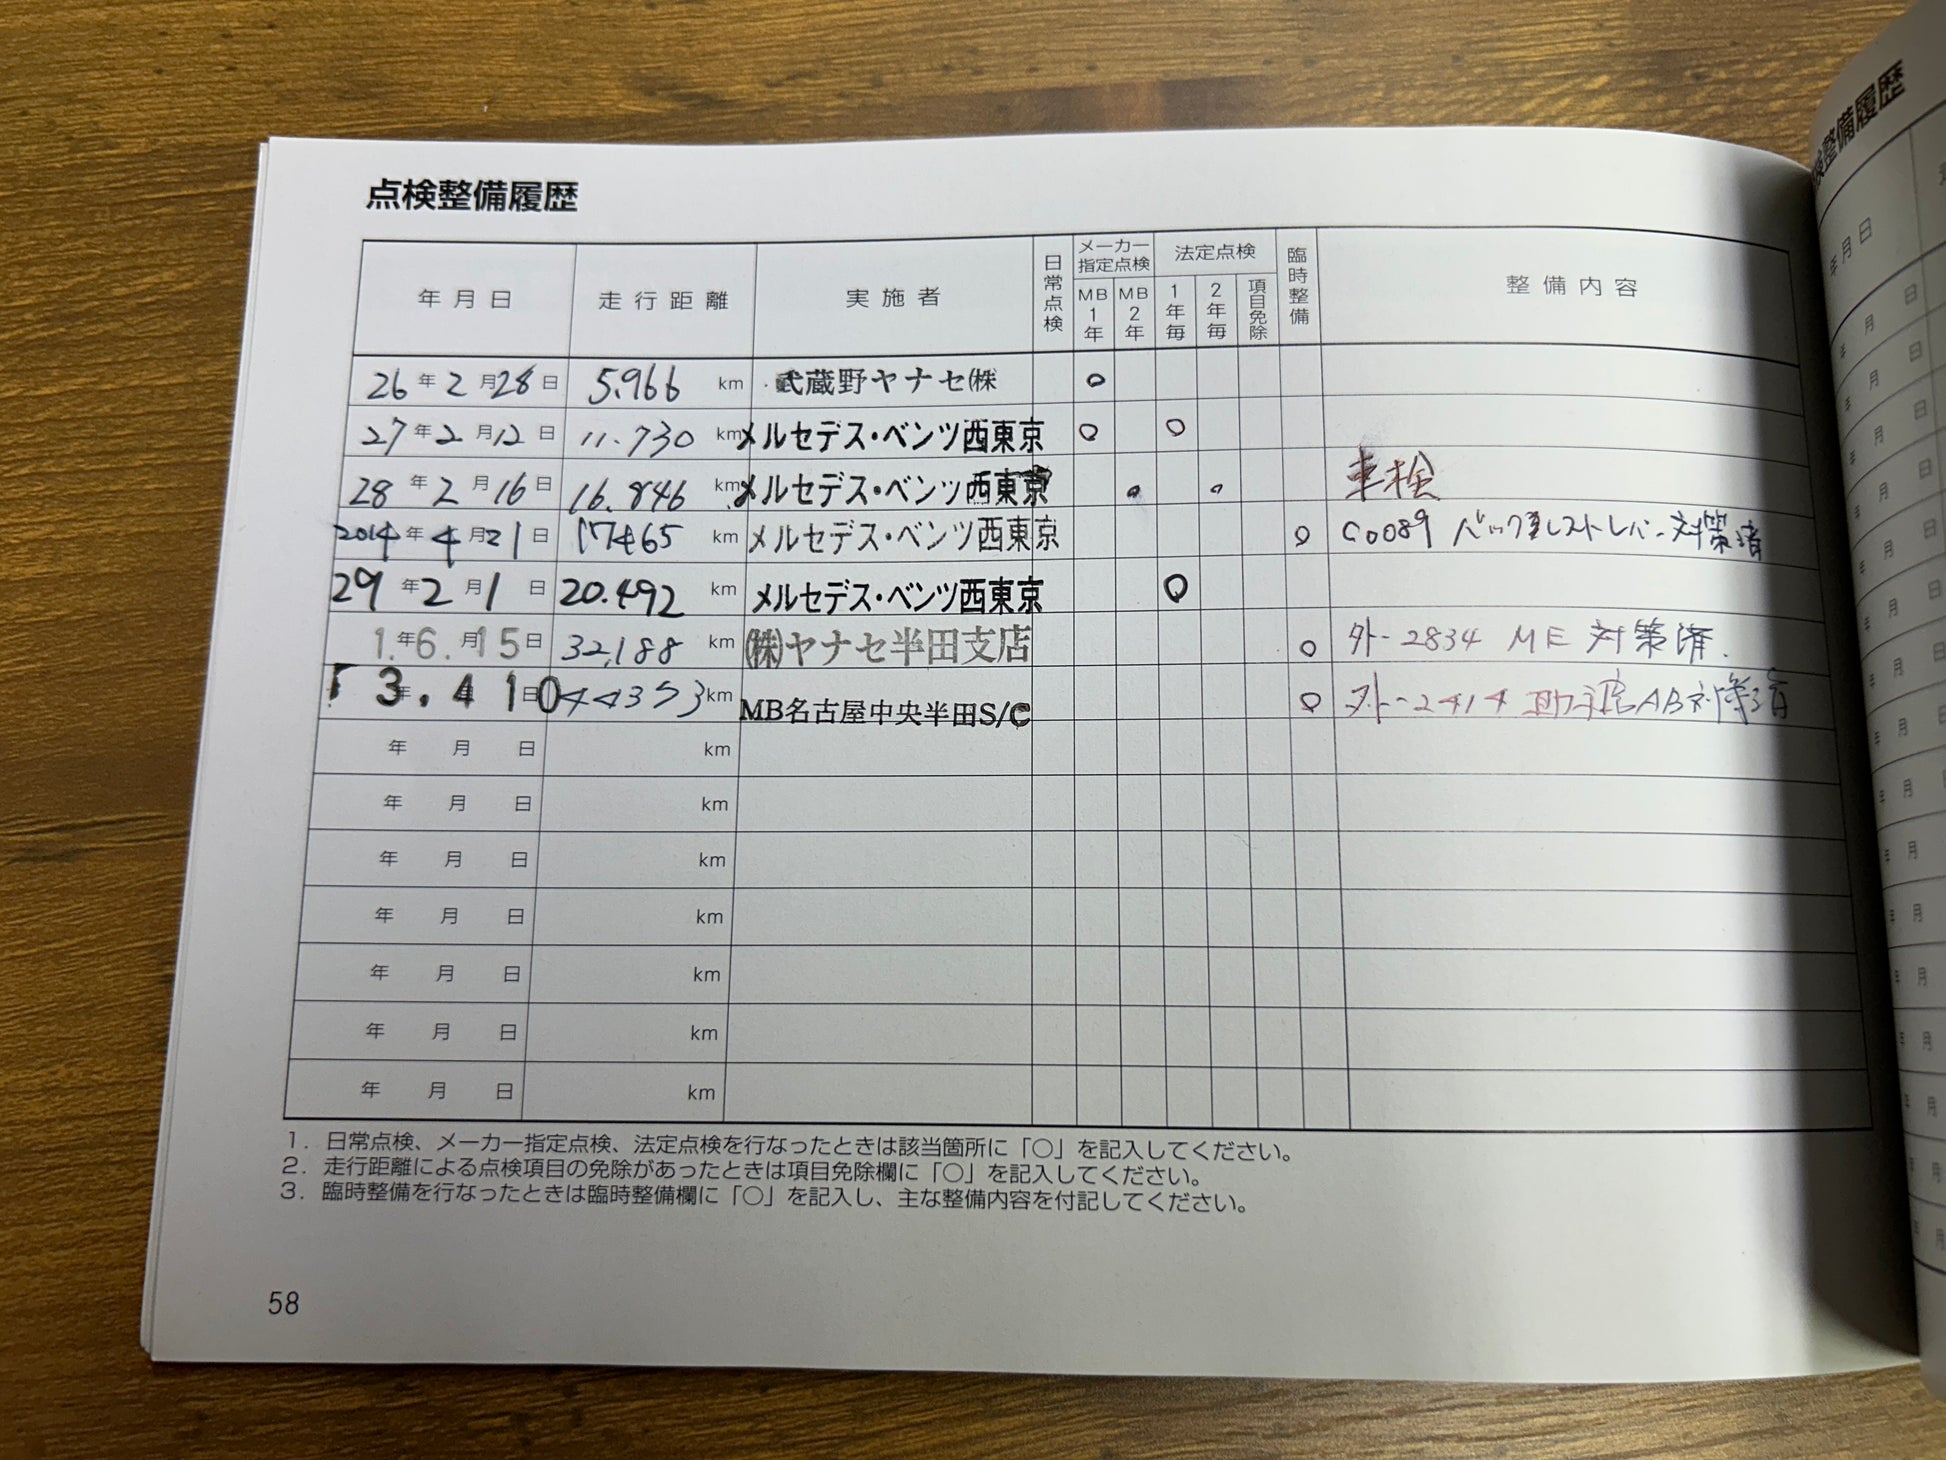 点検整備履歴
年月日 走行距離 実施者 日常点検 メーカー指定点検 MB1年 MB2年 法定点検 1年毎 2年毎 項目免除 臨時整備 整備内容
26年2月28日 5.966 km 武蔵野ヤナセ㈱ ○
27年2月12日 11.730 km メルセデス・ベンツ西東京 ○ ○
28年2月16日 16.846 km メルセデス・ベンツ西東京 ○ ○ 車検
2014年4月21日 17465 km メルセデス・ベンツ西東京 ○ C0089 バックレストレバー対策済
29年2月1日 20.492 km メルセデス・ベンツ西東京 ○
1.年6.月15日 32,188 km ㈱ヤナセ半田支店 ○ 外-2834 ME 対策済.
3年.4月10日 44353 km MB名古屋中央半田S/C ○ 外-2414 助手席AB対策済
年 月 日 km
年 月 日 km
年 月 日 km
年 月 日 km
年 月 日 km
年 月 日 km
年 月 日 km
1．日常点検、メーカー指定点検、法定点検を行なったときは該当箇所に「○」を記入してください。
2．走行距離による点検項目の免除があったときは項目免除欄に「○」を記入してください。
3．臨時整備を行なったときは臨時整備欄に「○」を記入し、主な整備内容を付記してください。
58
点検整備履歴
年月日